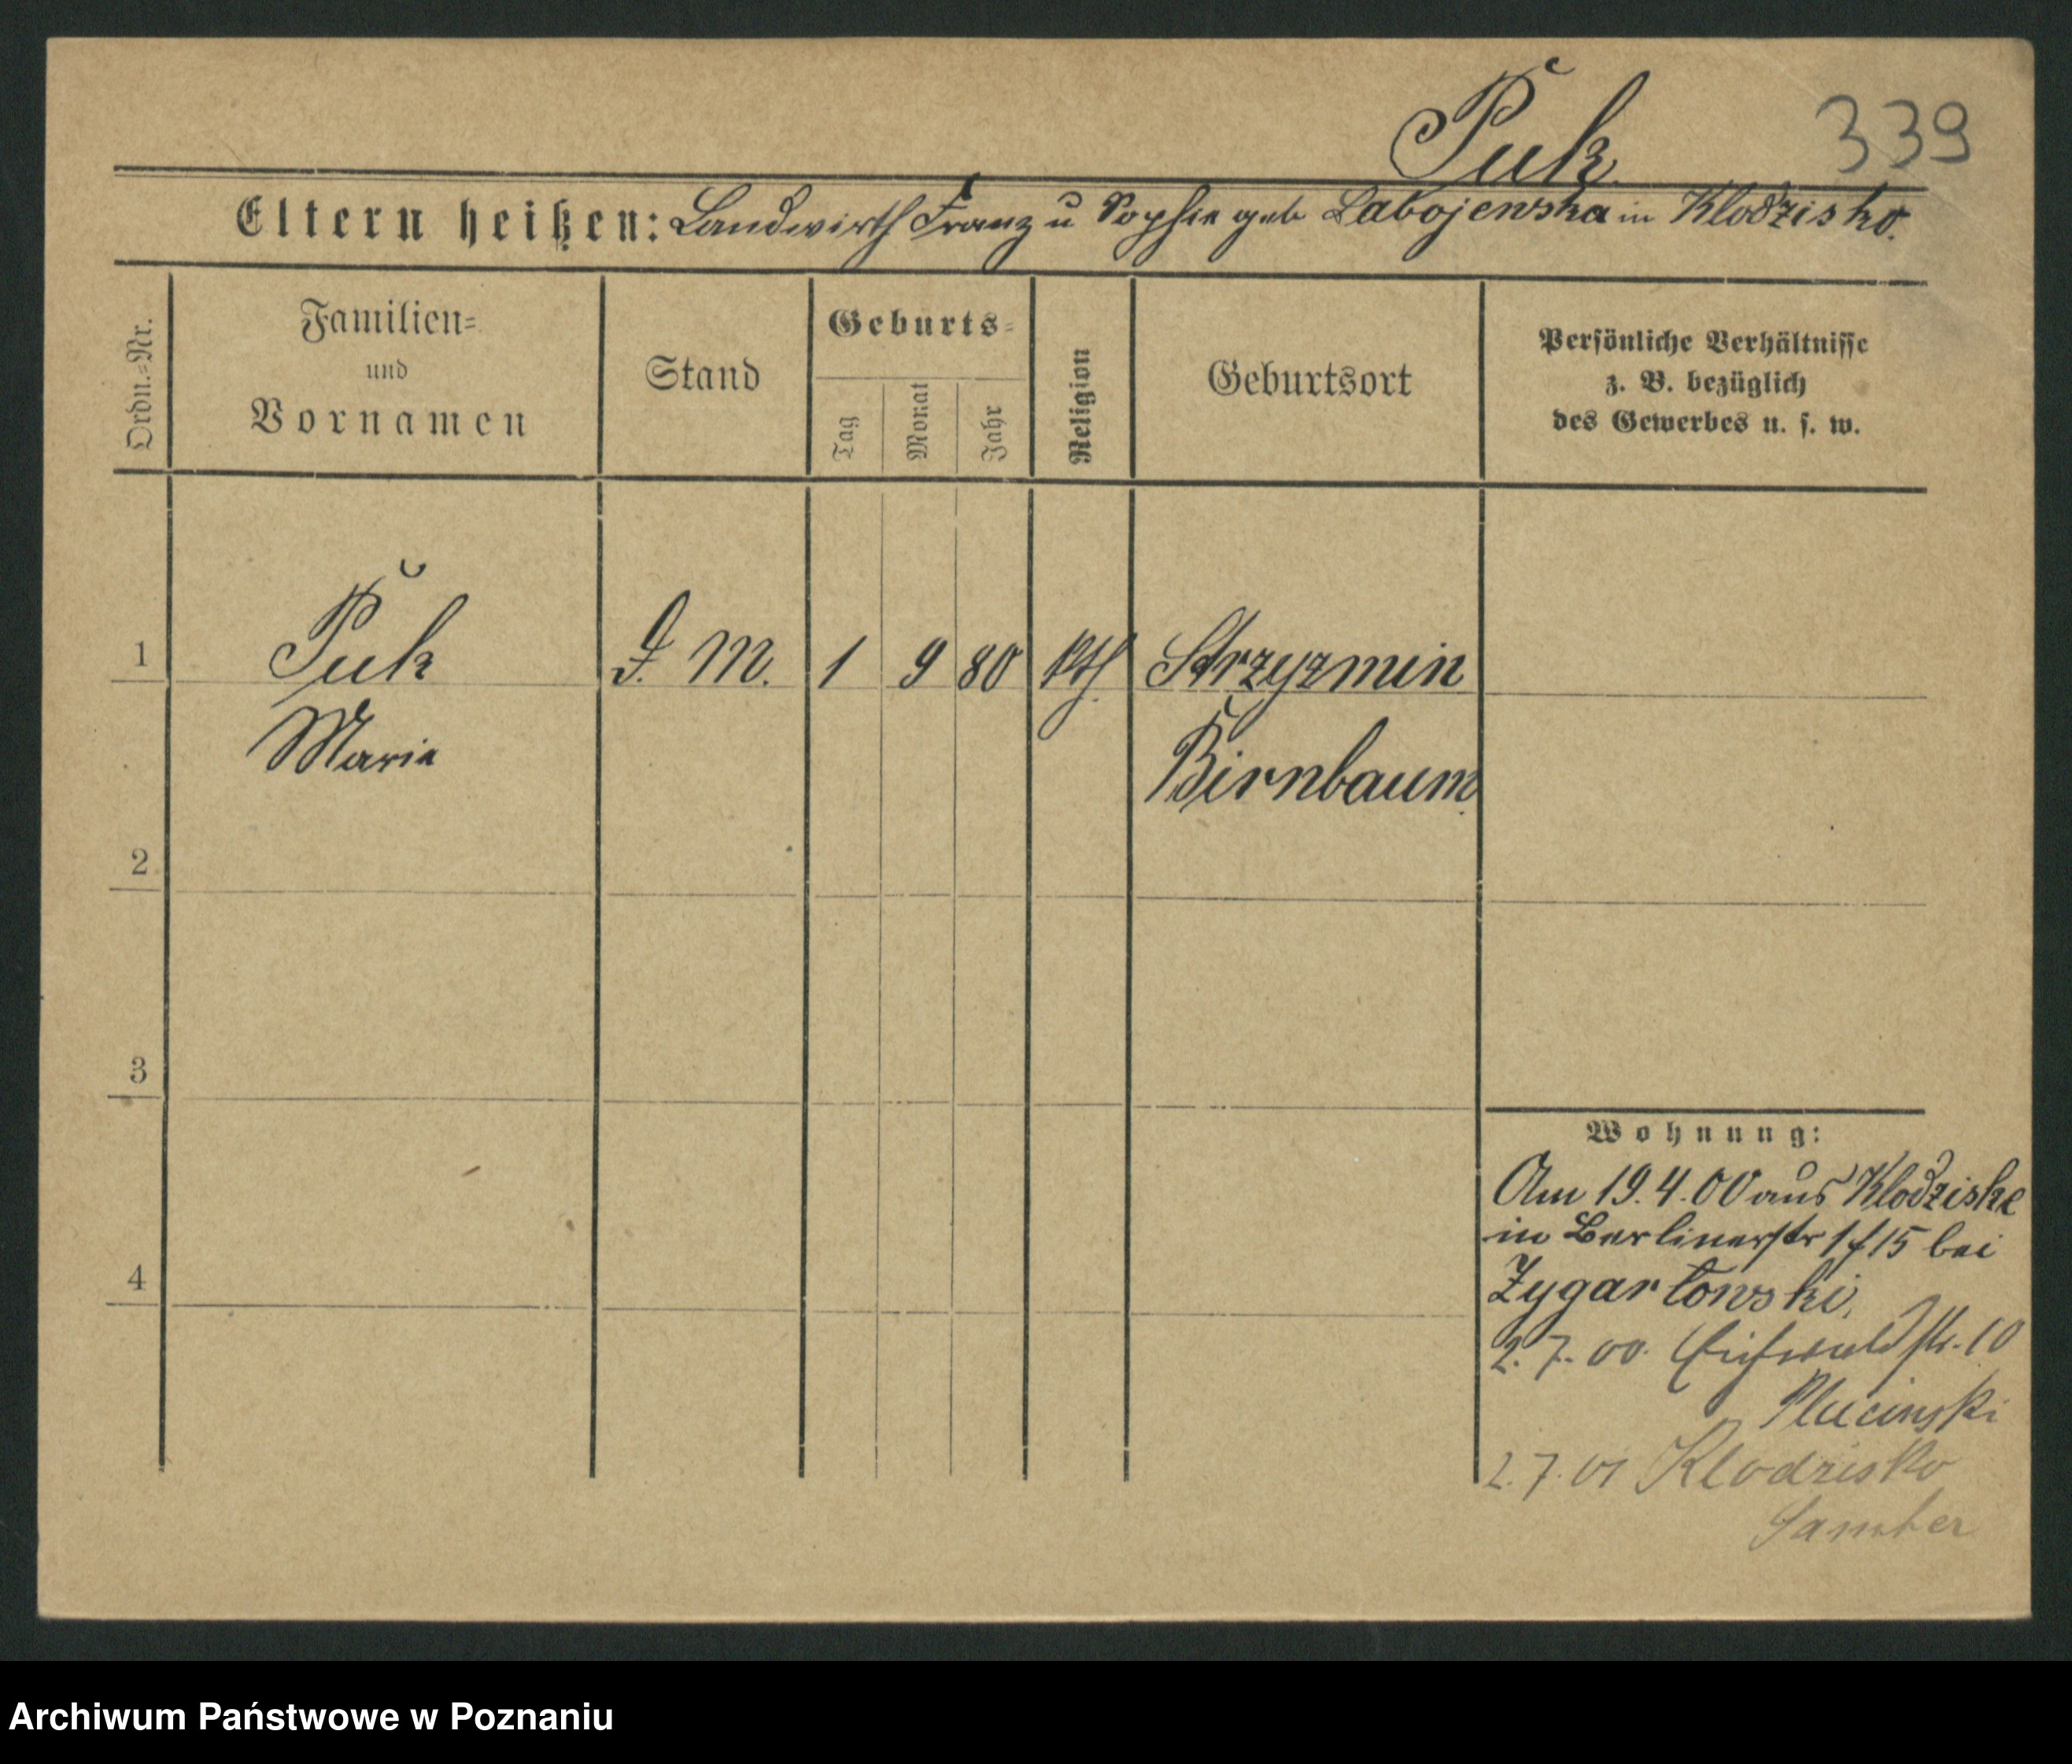 Puk
339
Eltern heißen: Landwirth Franz u Sophie geb Labojewska in Klodzisko.
Ordn.=Nr.
Familien=
und
Vornamen
Stand
Geburts=
Tag
Monat
Jahr
Religion
Geburtsort
Persönliche Verhältnisse
z. B. bezüglich
des Gewerbes u. s. w.
1 Puk D. M. 1 9 80 kth Strzyzmin
Marie Birnbaum
2
3
4
Wohnung:
Am 19.4.00 aus Klodzisko
in Berlinerstr 15 bei
Zygartowski,
2.7.00. str. 10
Plucinski
2.7.01 Klodzisko
Samter
Archiwum Państwowe w Poznaniu